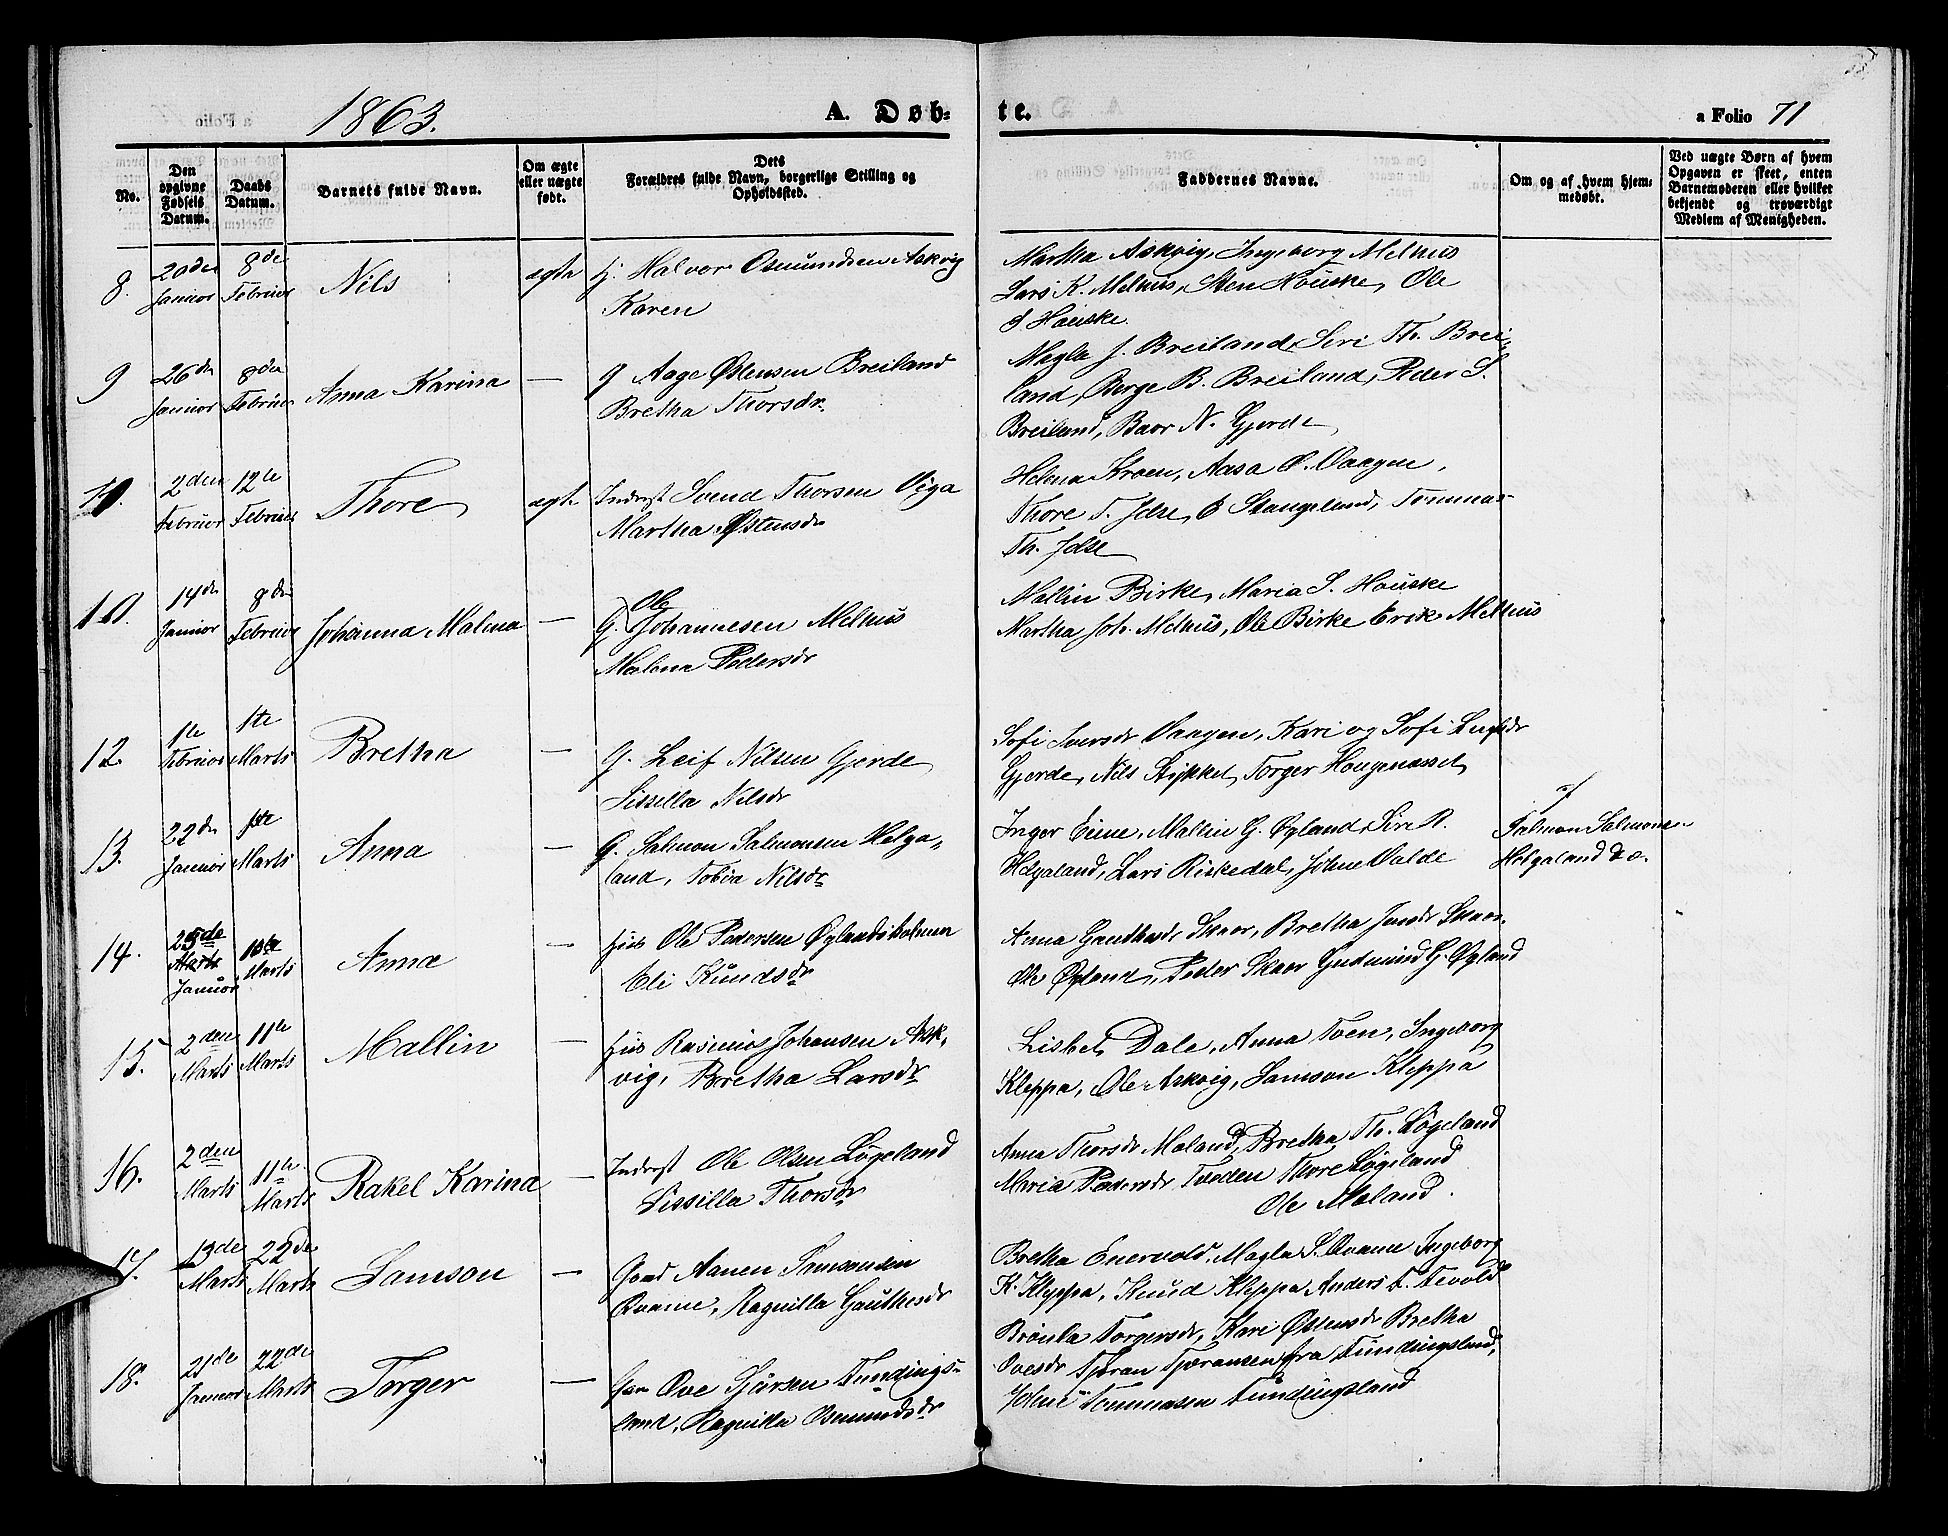 1863.
A. Døb-
te.
a Folio 71
No.
Den opgivne Fødsels Datum.
Daabs Datum.
Barnets fulde Navn.
Om ægte eller uægte født.
Dets Forældres fulde Navn, borgerlige Stilling og Opholdssted.
Faddernes Navne.
Om og af hvem hjemmedøbt.
Ved uægte Børn af hvem Opgaven er skeet, enten Barnemoderen eller hvilket bekjendt og troværdigt Medlem af Menigheden.
8. 20de Januar 8de Februar Nils ægte Halvor Osmundsen Askvig
Karen
Martha Askvig, Ingeborg Melhus
Lars K. Melhus, Sten Houske, Ole
Houske.
9 26de Januar 8de Februar Anna Karina — g Aage Østensen Breiland
Bretha Thorsdr.
Magla J. Breiland, Siri Th. Brei-
land, Børge B. Breiland, Peder S.
Breiland, Baor N. Gjerde
10. 2den Februar 12te Februar Thore ægte Inderst Svend Thorsen Viga
Martha Østensdr
Helena Kroen, Aasa O. Vaagen,
Thore T. Jelse, Stangeland, Tommas
Th. Jelse
11. 14de Januar 8de Februar Johanna Malena — G. Ole Johannesen Melhus
Malena Pedersdr
Mallin Birke, Maria S. Houske
Martha Joh. Melhus, Ole Birke Erik Melhus
12. 1te Februar 1te Marts Bretha — G. Leif Nilsen Gjerde
Sissilla Nilsdr
Sofi Iversdr Vaagen, Kari og Sofi
Gjerde, Nils Stykket, Torger Hougenæsset
13. 22de Januar 1te Marts Anna — G. Salmon Salmonsen Helga-
land, Tobia Nilsdr
Inger Eime, Mallin G. Øyland, Siri R.
Helgaland, Lars Riskedal, Johne Valde
af
Salmon Salmons-
Helgaland d.o.
14. 25de Januar 1te Marts Anna — Hus Ole Pedersen Øglandsholmen
Eli Knudsdr
Anna Gauthesdr Skaar, Bretha Jonsdr Skaar
Ole Øyland, Peder Skaar Gudmund G. Øyland
15. 2den Marts 11te Marts Mallin — Hus Rasmus Johansen Ask-
vig, Bretha Larsdr
Lisbet Dale, Anna Toen, Ingeborg
Kleppa, Ole Askvig, Samson Kleppa
16. 2den Marts 11te Marts Rakel Karina — Inderst Ole Olsen Løgeland
Sissilla Thorsdr
Anna Thorsdr Moland, Bretha Th. Løgeland
Maria Pedersdr Tveden Thore Løgeland
Ole Moland.
17. 13de Marts 22de Marts Samson — Gaard Aanen Samsonsen
Qvame, Ragnilla Gauthesdr
Bretha Enervold, Magla S. Qvame Ingeborg
K. Kleppa, Knud Kleppa Anders T. Tevold
18. 21de Januar 22de Marts Torger — Ove Sjursen Fundings-
land, Ragnilla Osmundsdr
Brønla Torgersdr, Kari Østensdr Bretha
Ovesdr Tjøran Tjøransen fra Fundingsland,
Johne Tommasen Fundingsland